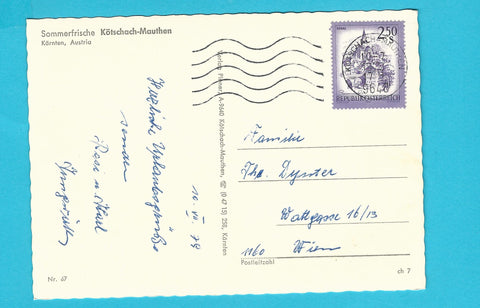 Sommerfrische Kötschach-Mauthen
Kärnten, Austria
Herzliche Urlaubsgrüße
senden
Resi u. Karl
10. VI 78
Verlag A-9640 Kötschach-Mauthen, (0 47 15) 258, Kärnten
2.50
REPUBLIK ÖSTERREICH
9640
Familie
Watgasse 16/13
1160 Wien
Postleitzahl
Nr. 67
ch 7